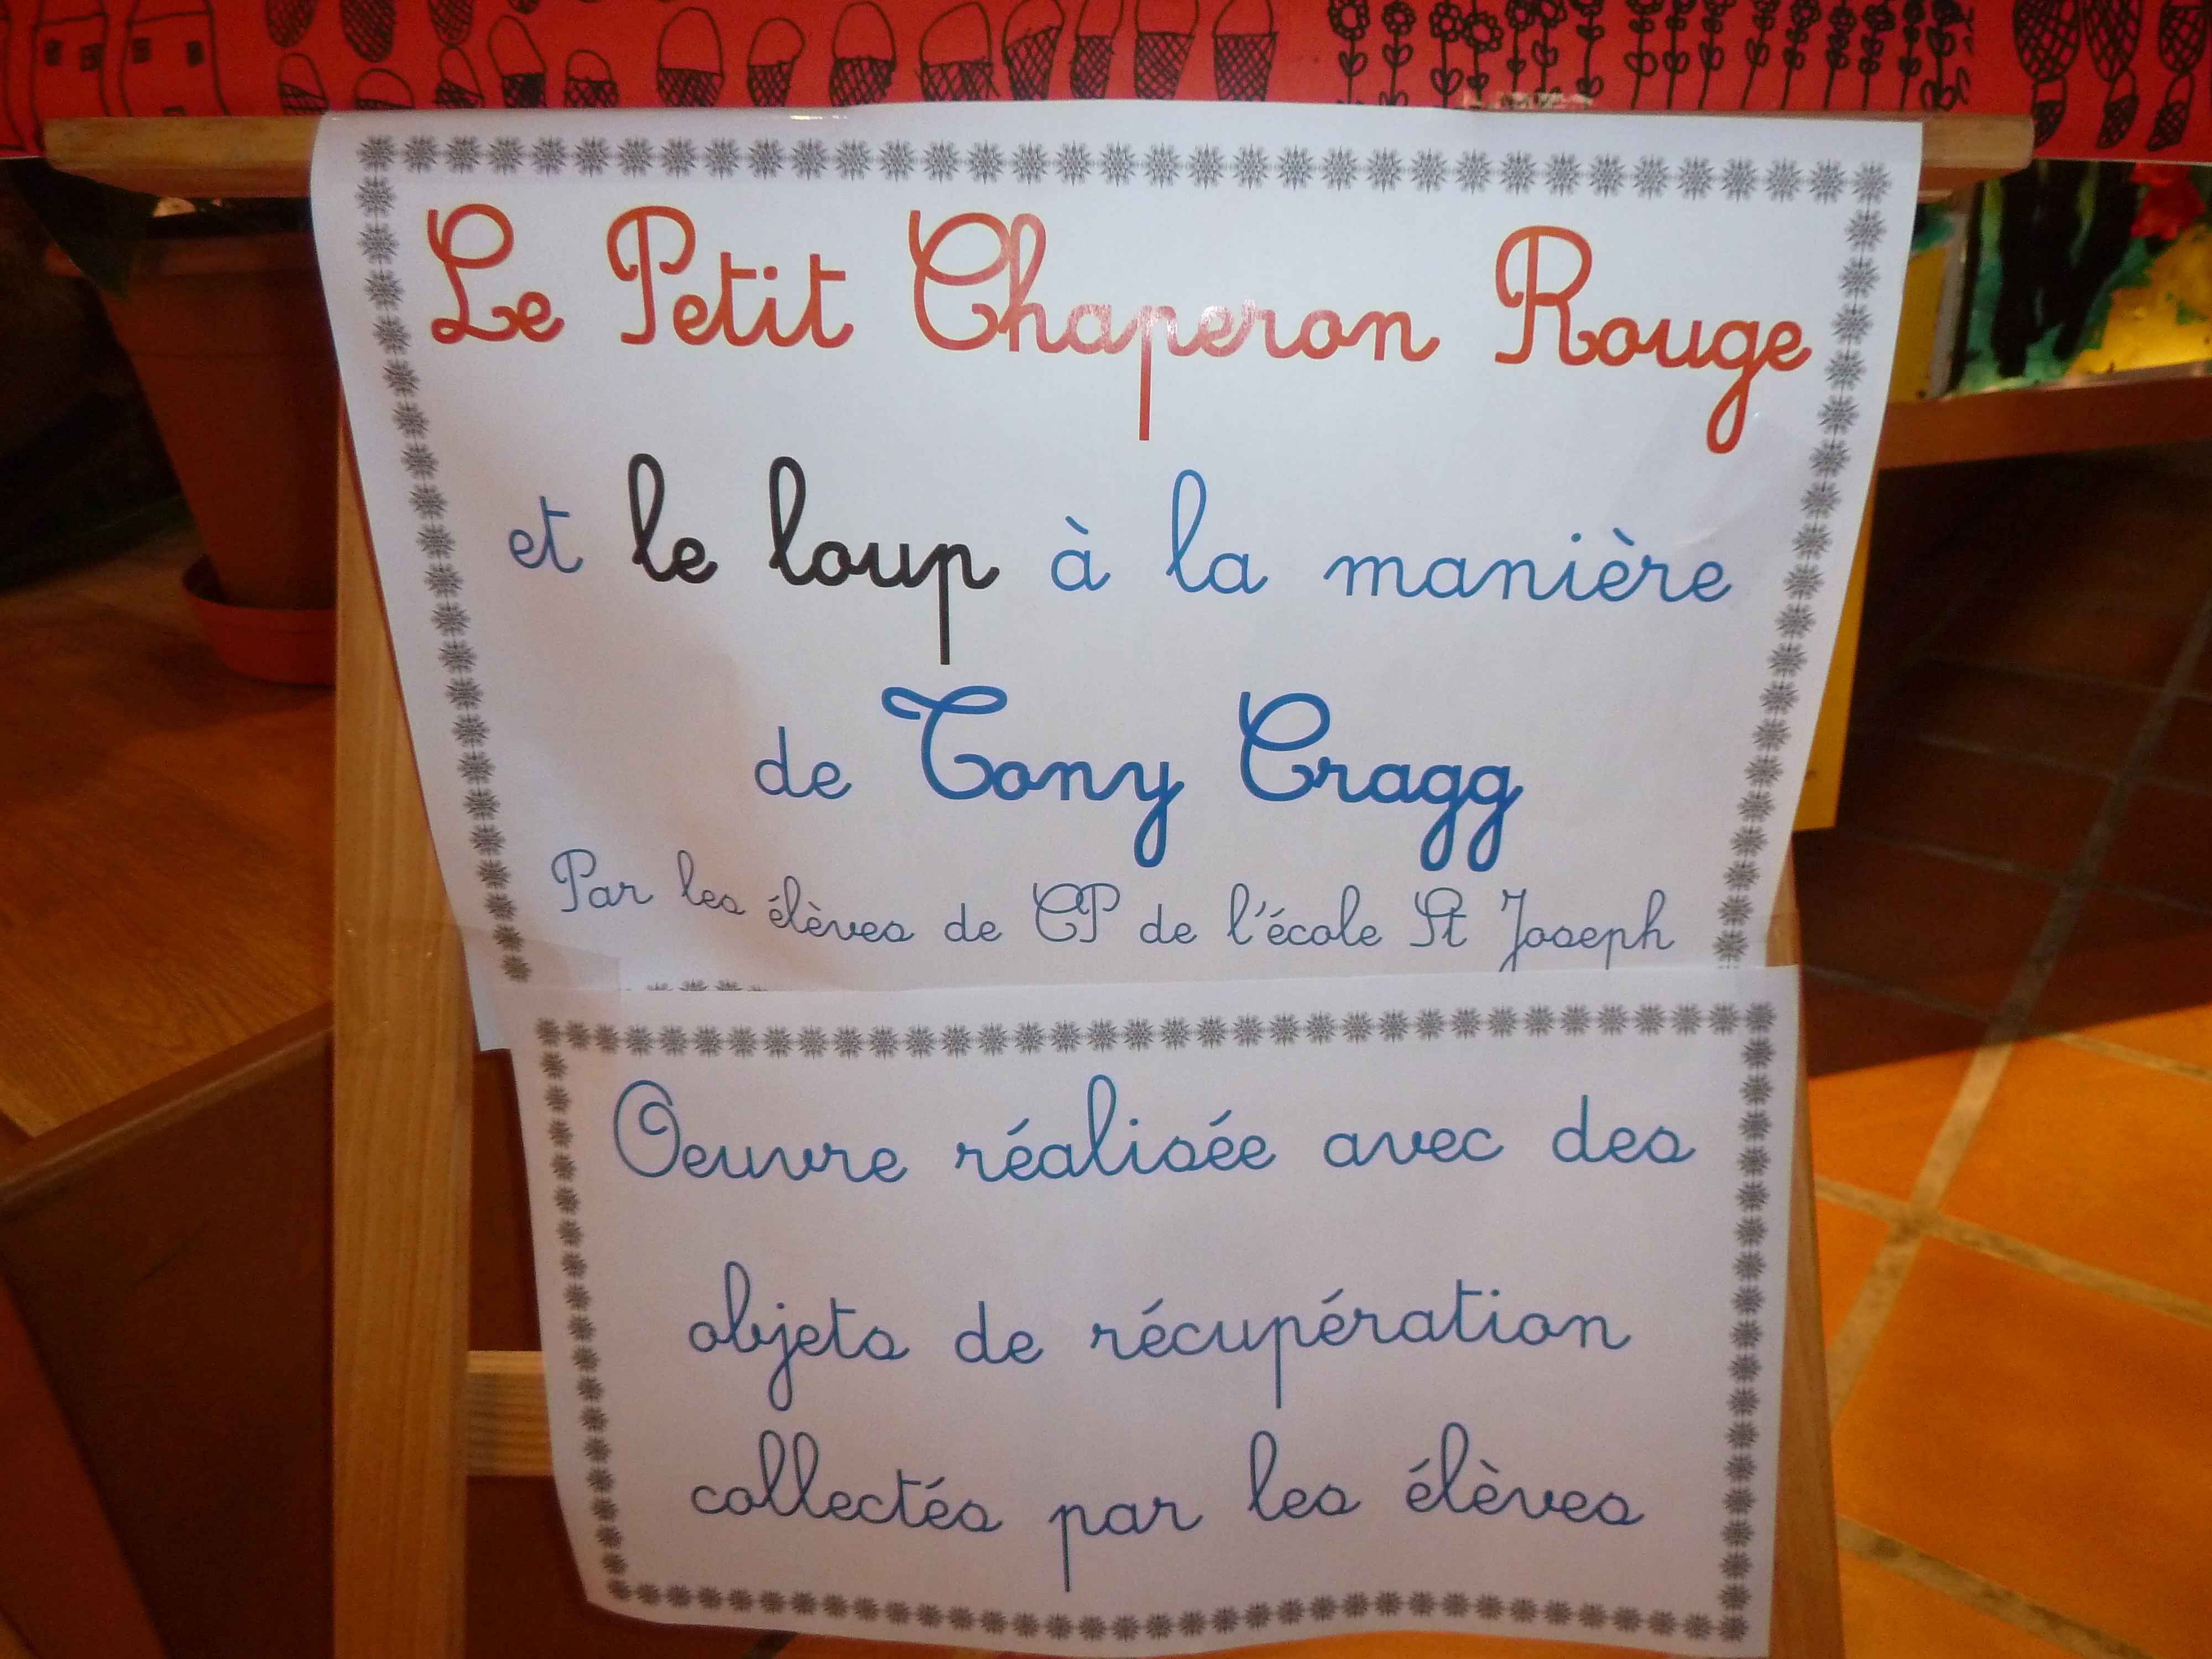 Le Petit Chaperon Rouge
et le loup à la manière
de Tony Cragg
Par les élèves de CP de l'école St Joseph
Oeuvre réalisée avec des
objets de récupération
collectés par les élèves